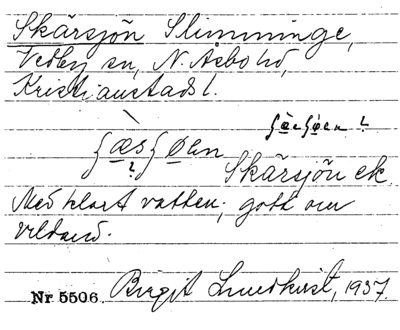 Skärsjön Slimminge,
Vedby sn, N. Åsbo hd,
Kristianstads l.
ʃæeʃøen ?
ʃæsʃøen
?
Skärsjön ek.
Med klart vatten; gott om
vildand.
Nr 5506. Birgit Lundkvist, 1937.